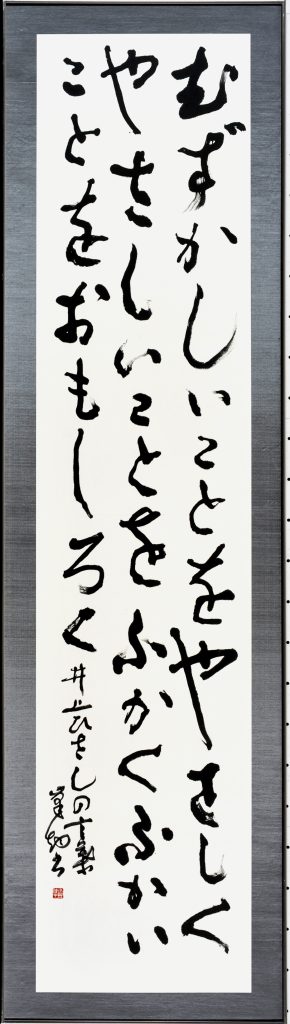 むずかしいことをやさしく
やさしいことをふかくふかい
ことをおもしろく
井上ひさしの言葉